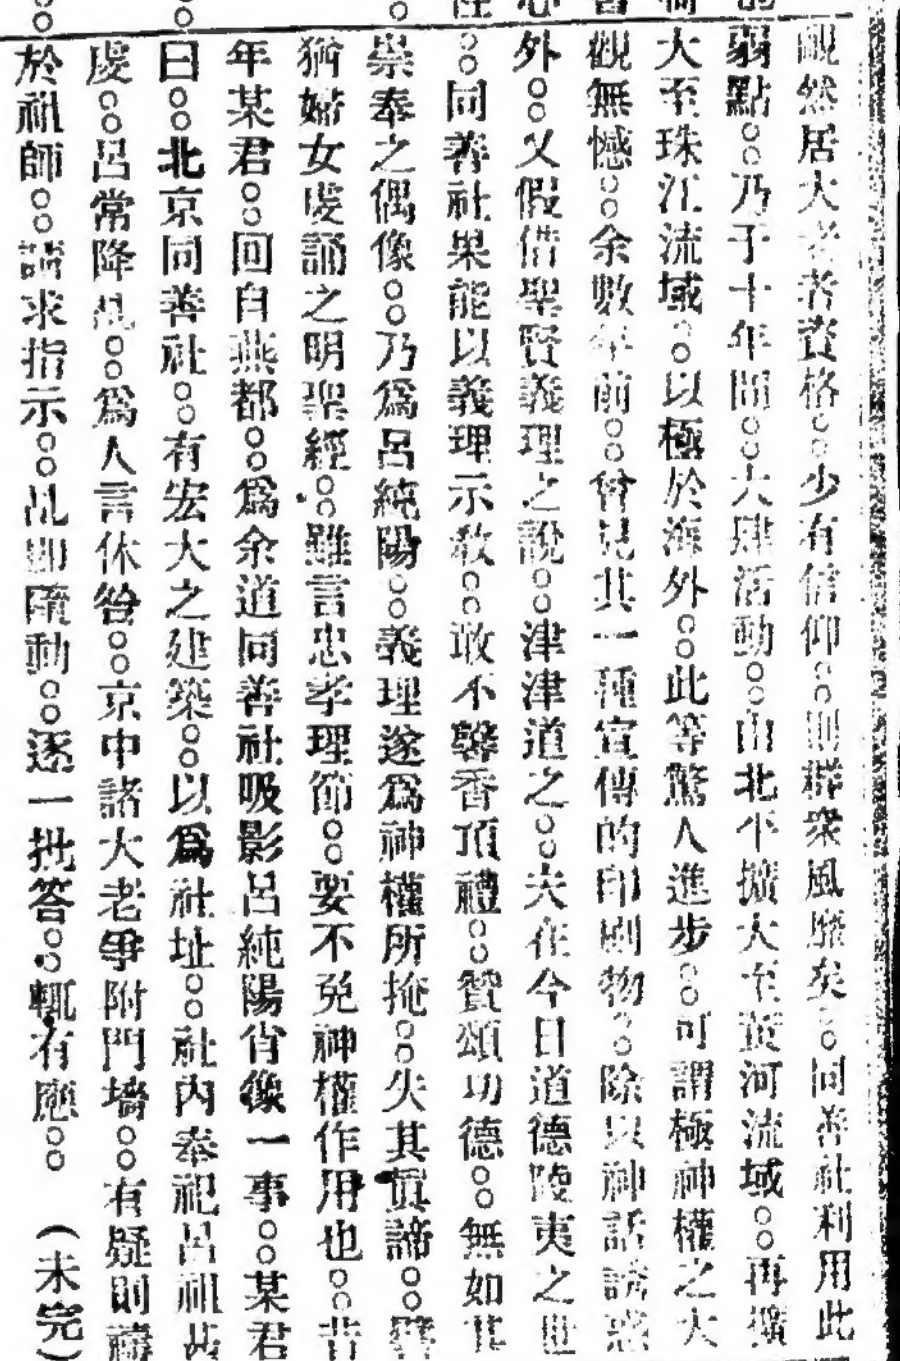 覥然居大老者資格○○少有信仰○○則羣衆風靡矣○○同善社利用此
弱點○○乃于十年間○○大肆活動○○由北平擴大至黃河流域○○再擴
大至珠江流域○○以極於海外○○此等驚人進步○○可謂極神權之大
觀無憾○○余數年前○○曾見其一種宣傳的印刷物○○除以神話誘惑
外○○又假借聖賢義理之說○○津津道之○○夫在今日道德陵夷之世
○○同善社果能以義理示敎○○敢不馨香頂禮○○贊頌功德○○無如其
崇奉之偶像○○乃爲呂純陽○○義理遂爲神權所掩○○失其眞諦○○譬
猶婦女虔誦之明聖經○○雖言忠孝理節○○要不免神權作用也○○昔
年某君○○回自燕都○○爲余道同善社吸影呂純陽肖像一事○○某君
曰○○北京同善社○○有宏大之建築○○以爲社址○○社內奉祀呂祖甚
虔○○呂常降乩○○爲人言休咎○○京中諸大老爭附門墻○○有疑則禱
於祖師○○請求指示○○乩卽隨動○○逐一批答○○輒有應○○ (未完)